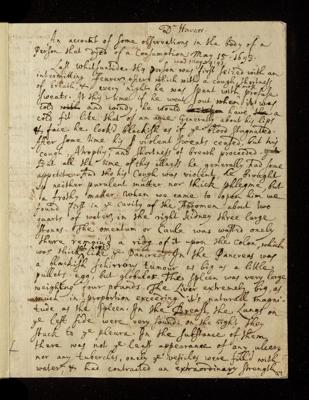 Dr Havers
An account of some observations in the Body of a
Person that Dyed of a Consumption May 15 1695
Last Whitsuntide this person was first seized with an
intermitting feaver, after which with a Cough, shortness
of breath & every night he was spent with profuse
sweats. At this time if he went out when it was
cold and windy, he would have had a
cold fit like that of an ague generally about his lips
& face he look'd blackish as if ye blood stagnated.
After some time his violent sweats ceased, but his
cough, atrophy and shortness of breath proceeded
But all the time of this illness he generally had some
appetite. And tho his Cough was violent, he brought
up neither purulent matter nor thick phlegme, but
a frothy matter. When we came to open him we
found First in ye cavity of the Abdomen about two
quarts of water, in the right Kidney three large
stones. The omentum or Caule was wasted onely
there remaining a ridg of it upon the Colon, which
was thick like ye Pancreas. In the Pancreas was
plainly a Schirrous tumour as big as a little
pullets egg but globular. The Spleen was very large
weighing four pounds. The Liver extremely big as
much in proportion exceeding it's naturall magni-
tude as the Spleen. In the Breast the Lungs on
ye left side were very sound, on the right they
stuck to ye pleura. In the substance of them
there was not ye least appearance of any ulcers
nor any tubercles, onely ye vesicles were full with
water & had contracted an extraordinary strength